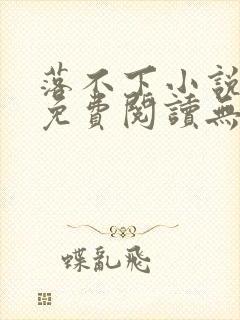 落不下小說
免費閱讀無
蝶亂飛